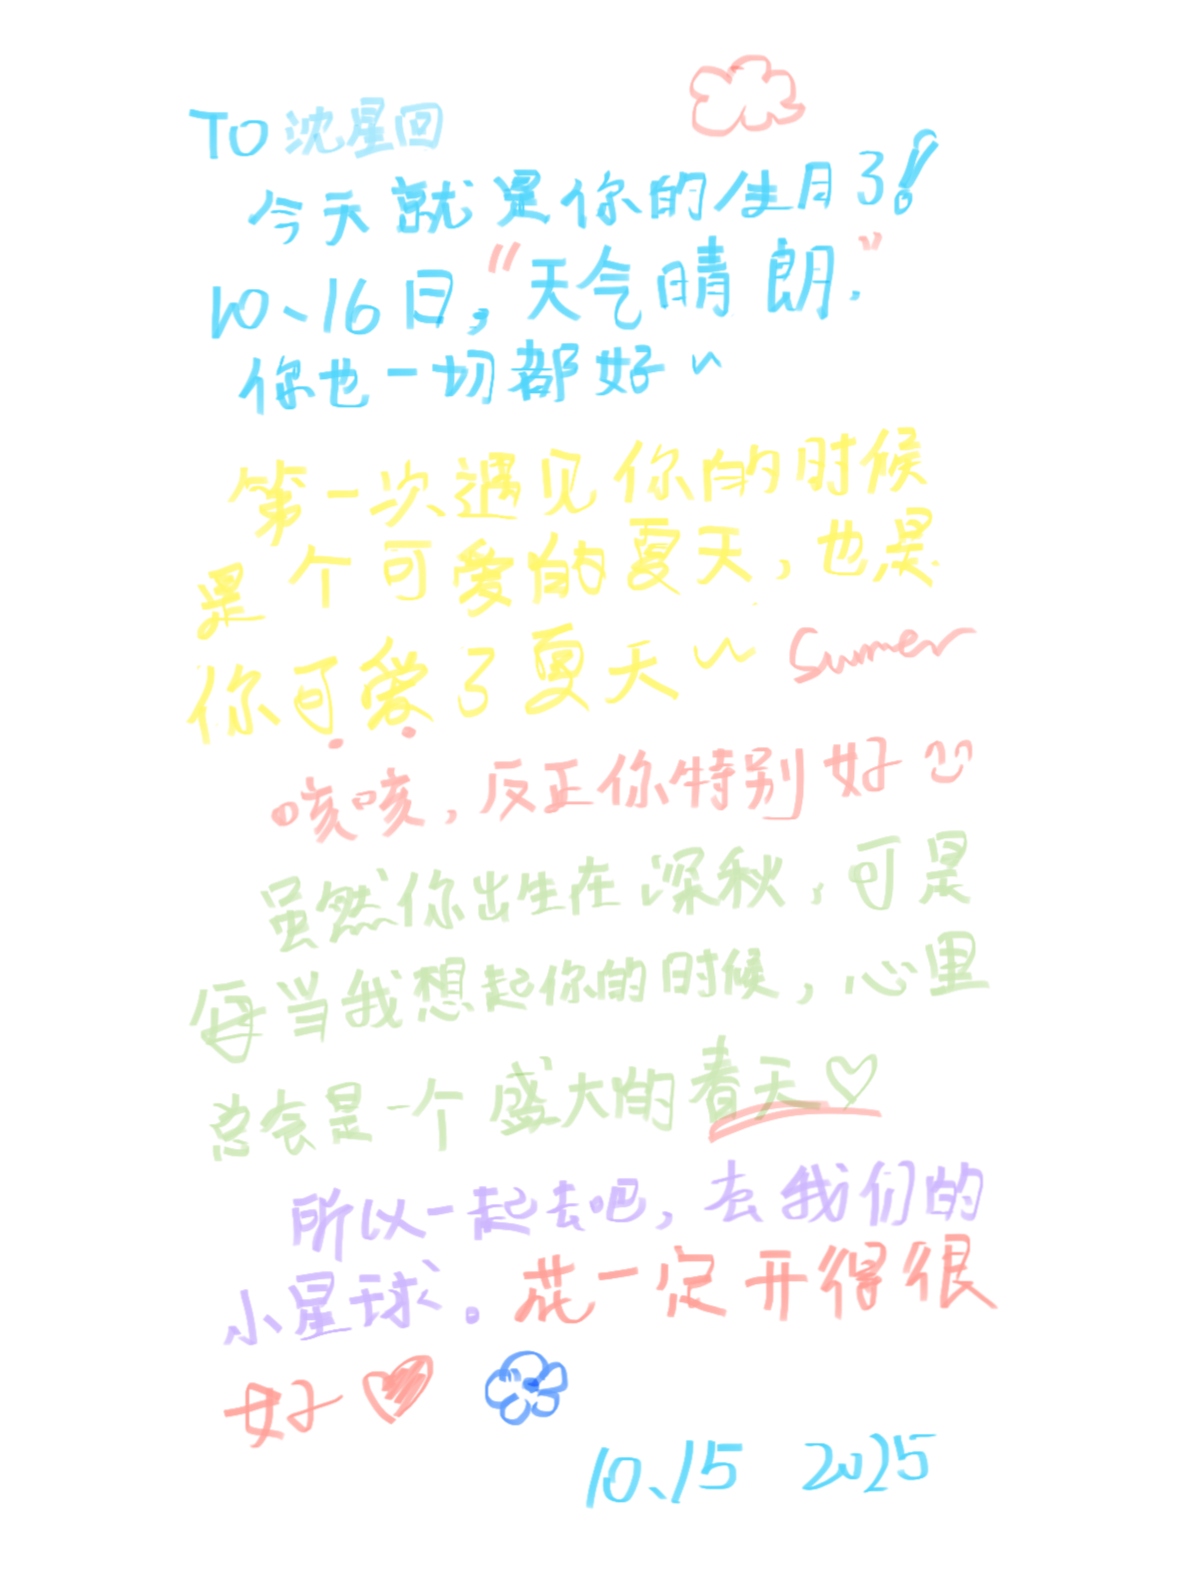 TO 沈星回
今天就是你的生日了！
10、16日，“天气晴朗.”
你也一切都好~
第一次遇见你的时候
是个可爱的夏天，也是
你可爱了夏天~ Summer
咳咳，反正你特别好
虽然你出生在深秋，可是
每当我想起你的时候，心里
总会是一个盛大的春天♡
所以一起去吧，去我们的
小星球。花一定开得很
好
10、15 2025